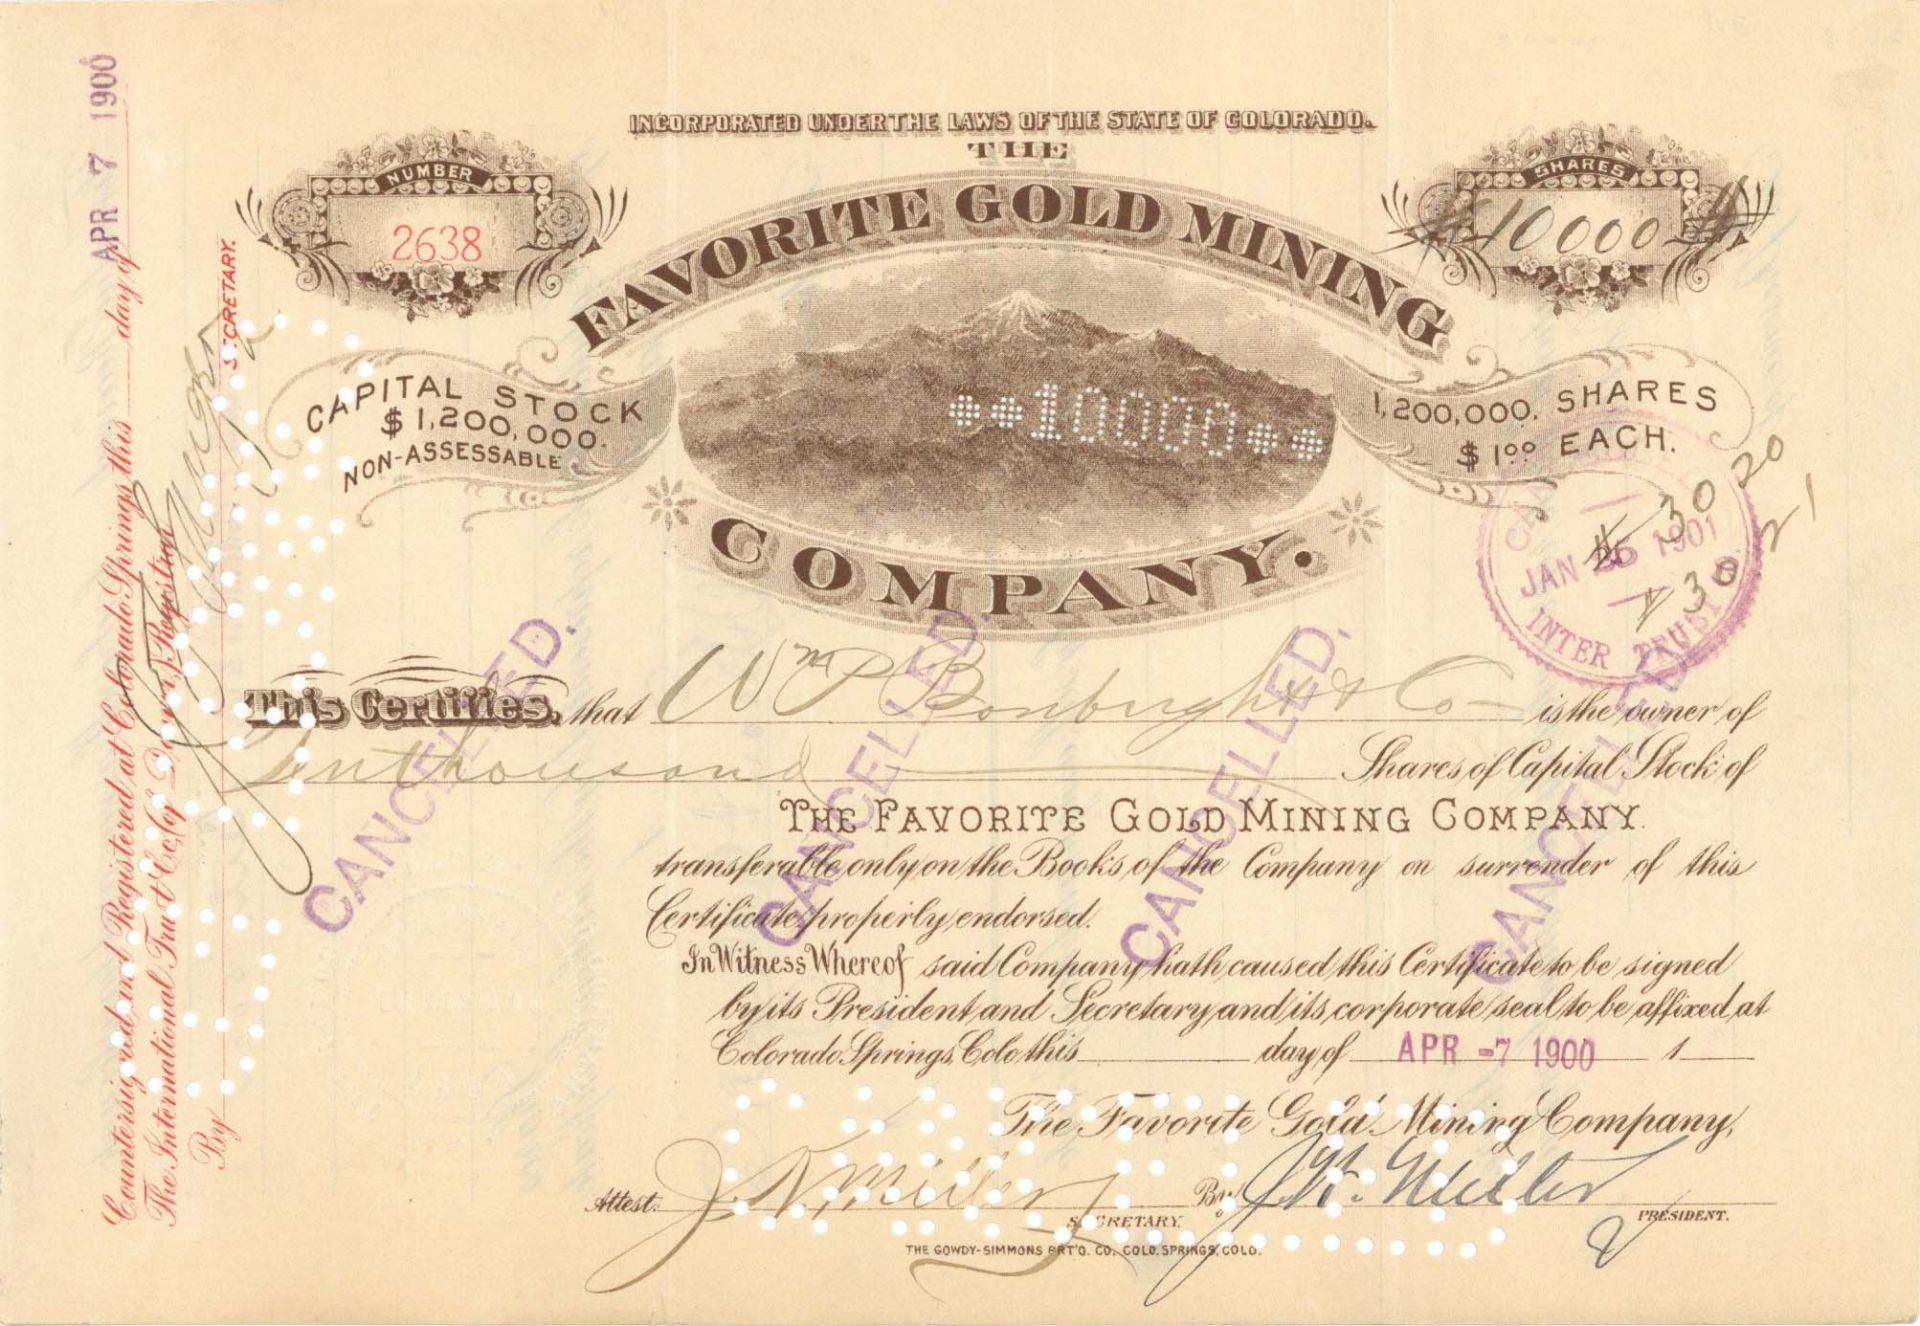 INCORPORATED UNDER THE LAWS OF THE STATE OF COLORADO.
THE
NUMBER
2638
SHARES
10000
FAVORITE GOLD MINING
COMPANY.
CAPITAL STOCK
$1,200,000.
NON-ASSESSABLE
**10000**
1,200,000. SHARES
$1.00 EACH.
30 20
30 21
JAN 26 1901
INTER TRUST
This Certifies, that Wm P Bonbright & Co is the owner of
Ten thousand Shares of Capital Stock of
THE FAVORITE GOLD MINING COMPANY.
transferable only on the Books of the Company on surrender of this
Certificate properly endorsed.
In Witness Whereof said Company hath caused this Certificate to be signed
by its President and Secretary and its corporate seal to be affixed at
Colorado Springs, Colo this day of APR -7 1900 1
The Favorite Gold Mining Company,
Attest: J. K. Miller
SECRETARY.
By J. K. Miller
PRESIDENT.
THE GOWDY-SIMMONS PRT'G. CO. COLO. SPRINGS, COLO.
CANCELLED.
CANCELLED.
CANCELLED.
CANCELLED.
Countersigned and Registered at Colorado Springs this day of APR 7 1900
The International Trust Co. (of Denver) Registrar
By SECRETARY.